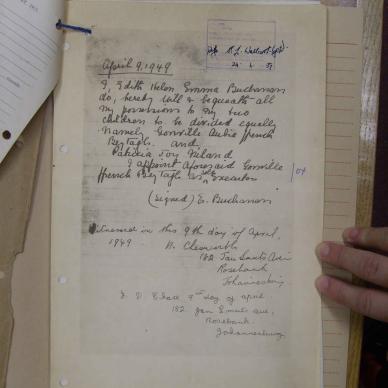 April 9, 1949
I, Edith Helen Emma Buchanan
do, hereby Will & bequeath all
my possessions to my two
children to be divided equally
Namely Gonville Aubie ffrench
Beytagh. and,
Patricia Joy Niland
I appoint aforesaid Gonville
ffrench Beytagh as sole executor
(signed) E. Buchanan
Witnessed in this 9th day of April,
1949
182 Jan Smuts Ave
Rosebank
Johannesburg
9th day of april
182 Jan Smuts Ave,
Rosebank.
Johannesburg